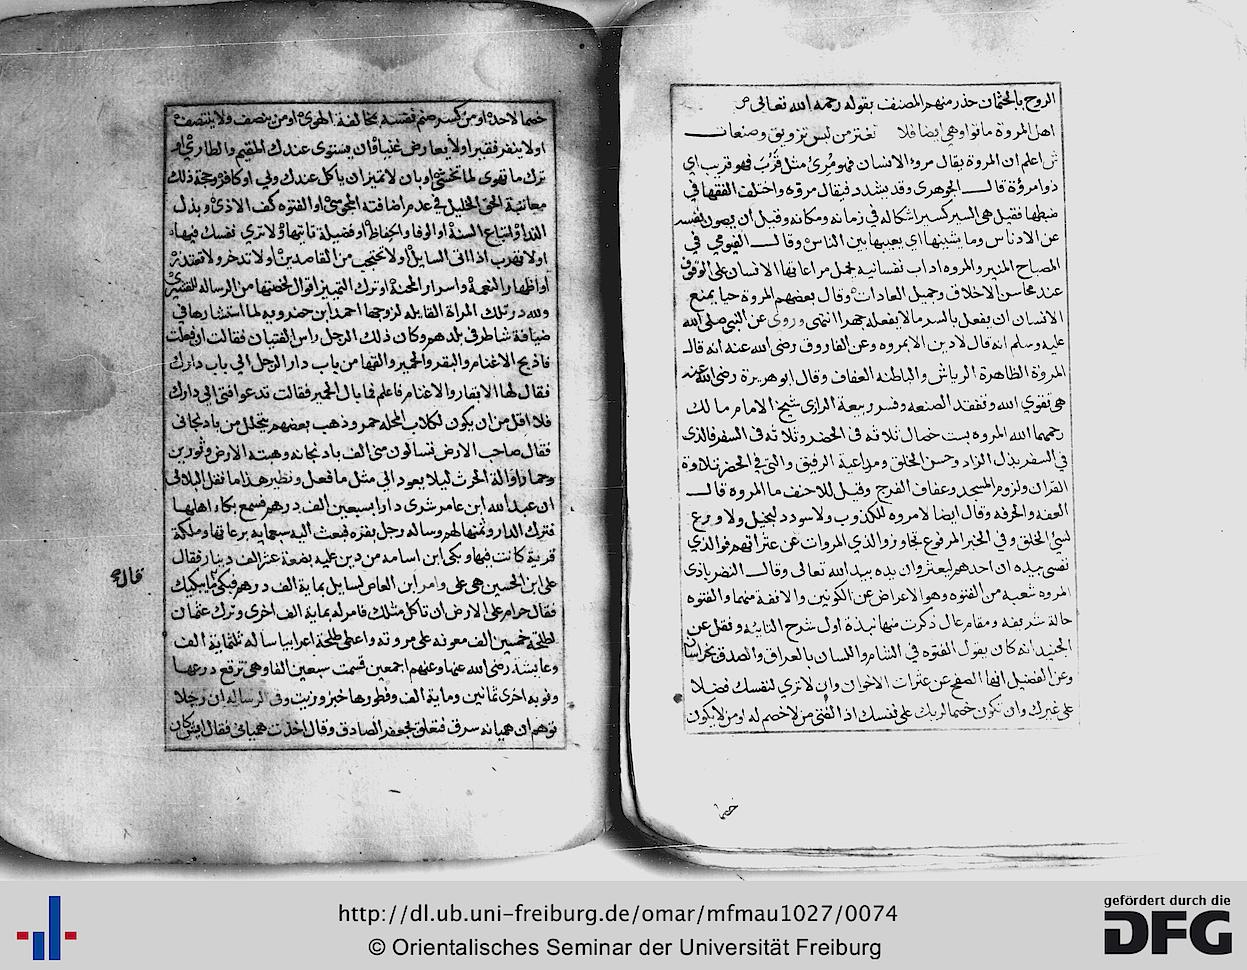 الروح بالجثمان حذر منهم المصنف بقوله رحمه الله تعالى
اهل المروة ماتوا وهي ايضا فلا تغتر من لبس تزويق وصنعات
اعلم ان المروة يقال مروء الانسان فهو مرئ مثل قرب فهو قريب اي
ذوا مروءة قال الجوهري وقد يشدد فيقال مروه واختلف الفقها في
ضبطها فقيل هي السير كسير اشكاله في زمانه ومكانه وقيل ان يصون نفسه
عن الادناس وما يشينها اي يعيبها بين الناس وقال الفيومي في
المصباح المنير والمروه اداب نفسانيه تحمل مراعاتها الانسان على الوقوف
عند محاسن الاخلاق وجميل العادات وقال بعضهم المروة حيا يمنع
الانسان ان يفعل بالسر مالا يفعله جهرا انتهى وروى عن النبي صلى الله
عليه وسلم انه قال لا دين الا بمروه وعن الفاروق رضى الله عنه انه قال
المروة الظاهرة الرياش والباطنه العفاف وقال ابو هريرة رضى الله عنه
هى تقوى الله وتفقد الصنعه وفسر ربيعة الرازى شيخ الامام مالك
رحمهما الله المروه بست خصال ثلاثه فى الحضر وثلاثه فى السفر فالذى
في السفر بذل الزاد وحسن الخلق ومراعية الرفيق والتي في الحضر تلاوة
القران ولزوم المسجد وعفاف الفرج وقيل للاحنف ما المروه قال
العفه والحرفه وقال ايضا لا مروه للكذوب ولا سودد لبخيل ولا ورع
لسيئ الخلق وفي الخبر المرفوع تجاوزوا لذي المروات عن عثراتهم فوالذي
نفسى بيده ان احدهم ليعثر وان يده بيد الله تعالى وقال النصرباذى
المروه شعبه من الفتوه وهو الاعراض عن الكونين والانفة منهما والفتوه
حالة شريفه ومقام عال ذكرت منها نبذة اول شرح التايه ونقل عن
الجنيد انه كان يقول الفتوه في الشام واللسان بالعراق والصدق بخراسان
وعن الفضيل انها الصفح عن عثرات الاخوان وان لا ترى لنفسك فضلا
على غيرك وان تكون خصما لربك على نفسك اذ الفتى من لا خصم له او من لا يكون
خصما
خصما لاحد او من كسر صنم نفسه بمخالفة الهوى او من ينصف ولا ينتصف
او لا ينفر فقيرا ولا يعارض غنيا وان يستوى عندك المقيم والطارئ او
ترك ما تهوى لما تخشى او بان لا تميز ان ياكل عندك ولي او كافر وحجة ذلك
معاتبة الحق الخليل في عدم اضافته المجوسي او الفتوه كف الاذى وبذل
الندا او اتباع السنة او الوفا والحفاظ او فضيلة تاتيها ولا ترى نفسك فيها
او لا تهرب اذا اتى السايل او لا تحتجب من القاصدين او لا تدخر ولا تعتذر
او اظهار النعمة واسرار المحنة او ترك التمييز اقوال لخصتها من الرساله للقشيرى
ولله در تلك المراة القايله لزوجها احمد ابن خضرويه لما استشارها في
ضيافة شاطر في بلدهم وكان ذلك الرجل راس الفتيان فقالت ان فعلت
فاذبح الاغنام والبقر والحمير والقها من باب دار الرجل الي باب دارك
فقال لها الابقار والاغنام فاعلم فما بال الحمير فقالت تدعوا فتى الي دارك
فلا اقل من ان يكون لكلاب المحله حمر وذهب بعضهم
فقال صاحب الارض تسالون منى الف باذنجانه وهبته الارض وثورين
وحمارا والة الحرث ليلا يعود الي مثل ما فعل ونظير هذا ما نقل البلالى
ان عبد الله ابن عامر شرى دارا بسبعين الف درهم فسمع بكاء اهلها
فترك الدار وثمنها لهم وساله رجل بقره فبعث اليه سبعمايه برعاتها وملكه
قرية كانت فيها وبكى ابن اسامه من دين عليه بضعة عشر الف دينار فقال
على ابن الحسين هى على وامر ابن العاص لسايل بماية الف درهم فبكى ما يبكيك
قال
فقال حرام على الارض ان تاكل مثلك فامر له بماية الف اخرى وترك عثمان
لطلحة خمسين الف معونه على مروته واعطى طلحة اعرابيا ساله ثلثماية الف
وعايشة رضى الله عنها وعنهم اجمعين قسمت سبعين الفا وهى ترقع درعها
ونوبه اخرى ثمانين وماية الف وفطورها خبز وزيت وفى الرساله ان رجلا
توهم ان هميانه سرق فتعلق بجعفر الصادق وقال اخذت همياني فقال ايش كان
http://dl.ub.uni-freiburg.de/omar/mfmau1027/0074
© Orientalisches Seminar der Universität Freiburg
gefördert durch die
DFG